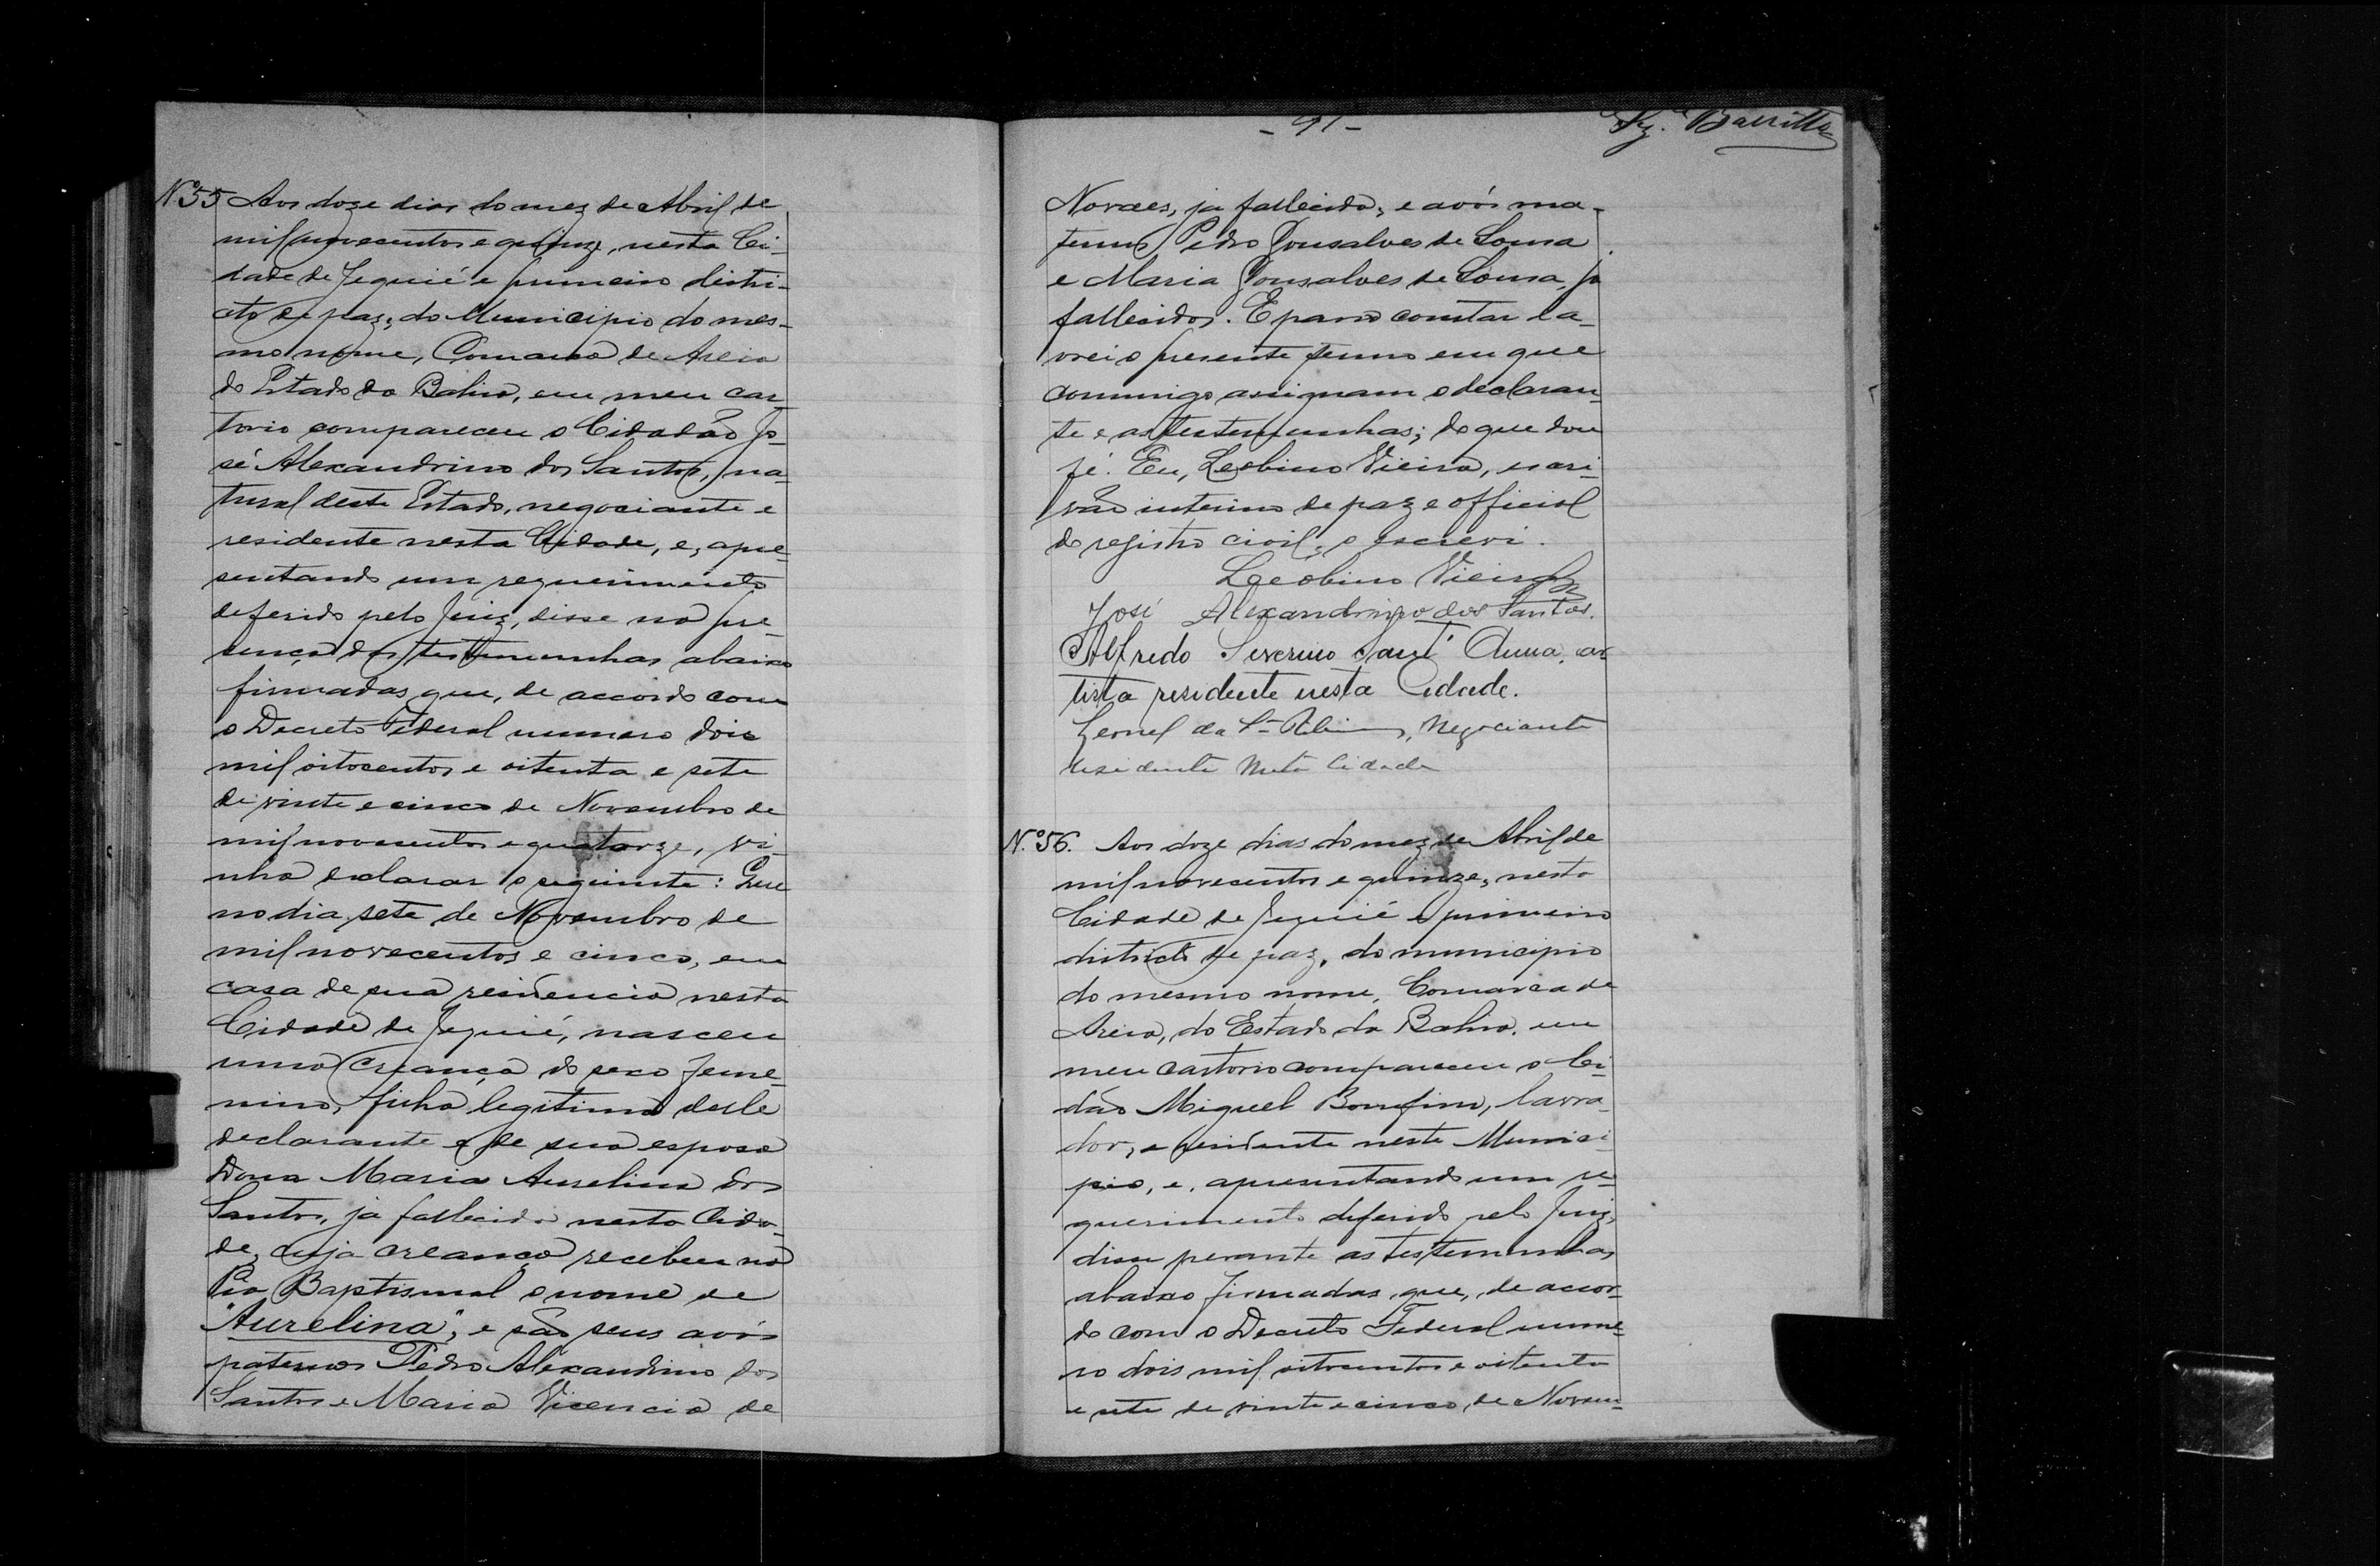 Nº 55 Aos doze dias do mez de Abril de
mil novecentos e quinze, nesta Ci-
dade de Jequié e primeiro distri-
cto de paz, do Municipio do mes-
mo nome, Comarca de Areia
do Estado da Bahia, em meu car-
torio compareceu o Cidadão Jo-
sé Alexandrino dos Santos, na-
tural deste Estado, negociante e
residente nesta Cidade, e, apre-
sentando um requerimento
deferido pelo Juiz, disse na pre-
sença das testemunhas abaixo
firmadas que, de accordo com
o Decreto Federal numero dois
mil oitocentos e oitenta e sete
de vinte e cinco de Novembro de
mil novecentos e quatorze, vi-
nha declarar o seguinte: Que
no dia sete de Novembro de
mil novecentos e cinco, em
casa de sua residencia nesta
Cidade de Jequié, nasceu
uma creança do sexo feme-
nino, filha legitima delle
declarante e de sua esposa
Dona Maria Aurelina dos
Santos, já fallecida nesta Cida-
de, cuja creança recebeu na
Pia Baptismal o nome de
"Aurelina", e são seus avós
paternos Pedro Alexandrino dos
Santos e Maria Vicencia de
- 91 -
Barritto
Novaes, já fallecida; e avós ma-
ternos Pedro Gonsalves de Sousa
e Maria Gonsalves de Sousa, ja
fallecidos. E para constar la-
vrei o presente termo em que
commigo assignam o declaran-
te e as testemunhas; do que dou
fé. Eu, Leobino Vieira, escri-
vão interino de paz e official
do registro civil, o escrevi.
Leobino Vieira
José Alexandrino dos Santos.
Alfredo Severino Sant'Anna, ar-
tista residente nesta Cidade.
Leonel da Negociante
residente nesta Cidade
Nº 56. Aos doze dias do mez de Abril de
mil novecentos e quinze, nesta
Cidade de Jequié e primeiro
districto de paz, do municipio
do mesmo nome, Comarca de
Areia, do Estado da Bahia, em
meu cartorio compareceu o Ci-
dão Miguel Bomfim, lavra-
dor, e residente neste Munici-
pio, e, apresentando um re-
querimento deferido pelo Juiz,
disse perante as testemunhas
abaixo firmadas, que, de accor-
do com o Decreto Federal nume-
ro dois mil oitocentos e oitenta
e sete de vinte e cinco de Novem-